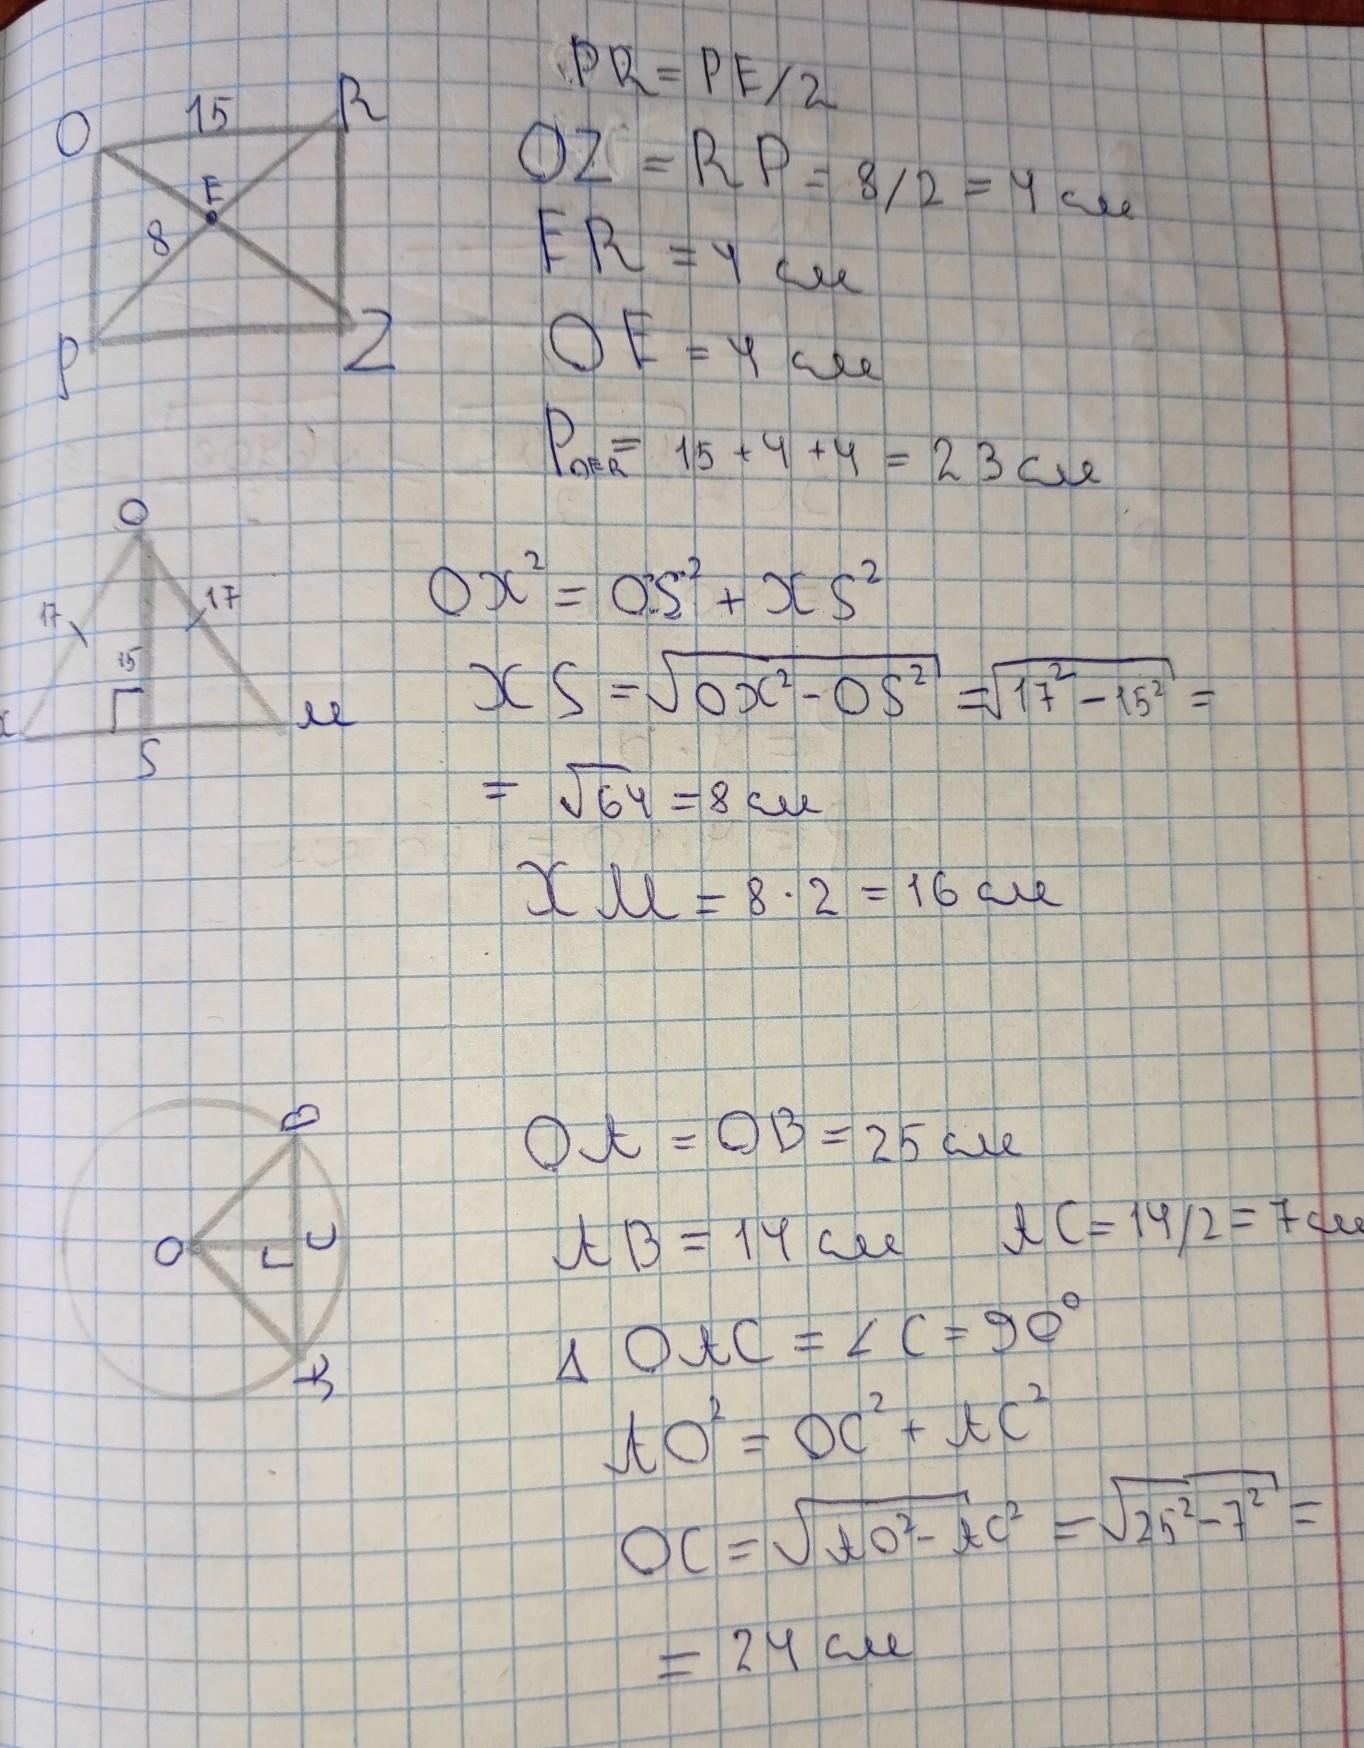 O 15 R
E
8
P Z
PR = PE/2
OZ = RP = 8/2 = 4 см
ER = 4 см
OE = 4 см
P OER = 15 + 4 + 4 = 23 см
O
17 17
15
X S M
OX² = OS² + XS²
XS = √OX² - OS² = √17² - 15² =
= √64 = 8 см
XM = 8 · 2 = 16 см
B
O C
A
OA = OB = 25 см
AB = 14 см AC = 14/2 = 7 см
Δ OAC = ∠C = 90°
AO² = OC² + AC²
OC = √AO² - AC² = √25² - 7² =
= 24 см